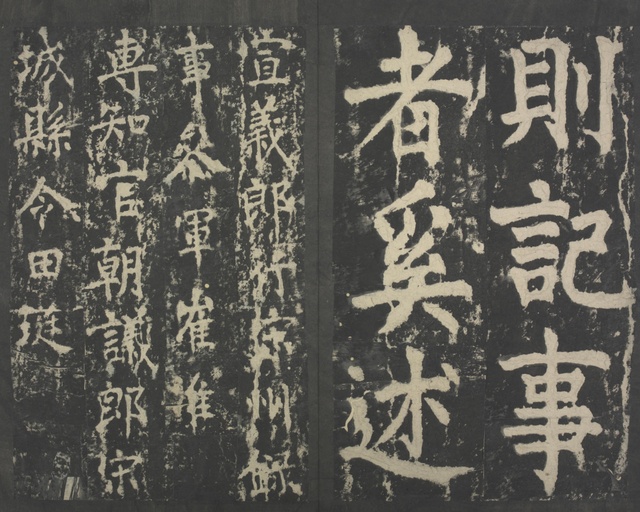 則記事
者奚述
宣義郎行宋州錄
事參軍崔淮
專知官朝議郎宋
城縣令田